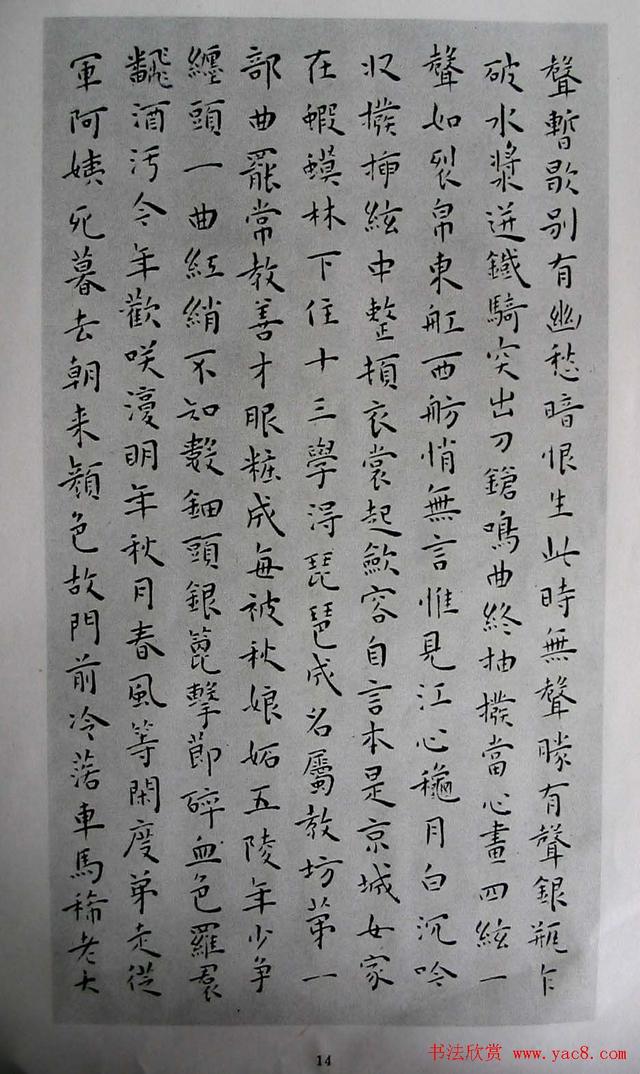 聲暫歇別有幽愁暗恨生此時無聲勝有聲銀瓶乍
破水漿迸鐵騎突出刀鎗鳴曲終抽撥當心畫四絃一
聲如裂帛東舡西舫悄無言惟見江心龝月白沉吟
收撥揷絃中整頓衣裳起歛容自言本是京城女家
在蝦蟆林下住十三學得琵琶成名屬教坊第一
部曲罷常教善才眼粧成每被秋娘妬五陵年少争
纏頭一曲紅綃不知數鈿頭銀篦擊節碎血色羅裠
飜酒污今年歡咲澓明年秋月春風等閑度弟走從
軍阿姨死暮去朝来顏色故門前冷落車馬稀老大
14
书法欣赏 www.yac8.com